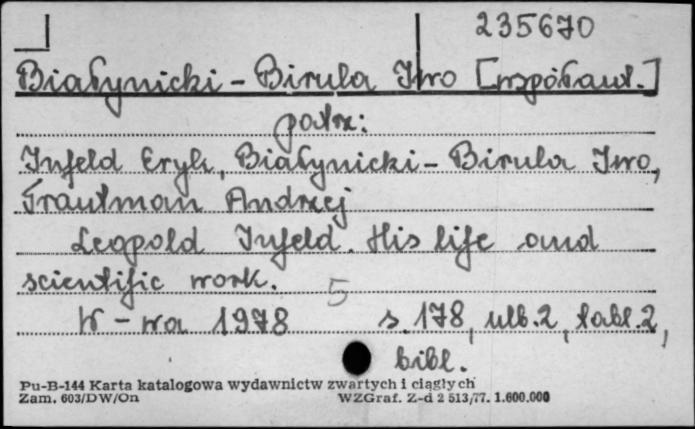 235670
Białynicki-Birula Iwo [współaut.]
patrz:
Infeld Eryk, Białynicki-Birula Iwo,
Trautman Andrzej
Leopold Infeld. His life and
scientific work.
5
W-wa 1978 s. 178, ulb. 2, tabl. 2,
bibl.
Pu-B-144 Karta katalogowa wydawnictw zwartych i ciągłych
Zam. 603/DW/On WZGraf. Z-d 2 513/77. 1.600.000